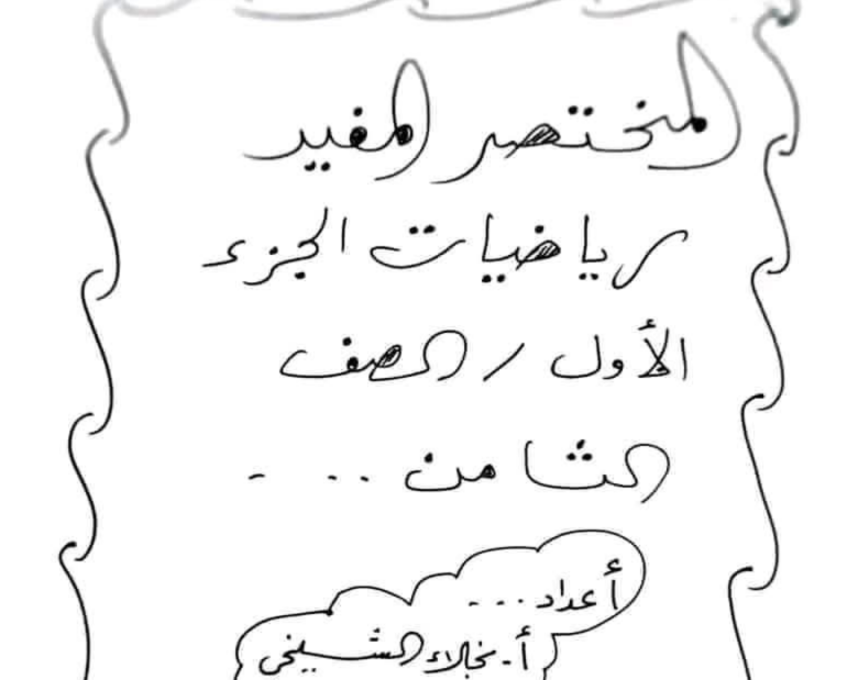 المختصر المفيد
رياضيات الجزء
الأول / الصف
الثامن . . . -
أعداد . . .
أ. نجلاء الشيخي